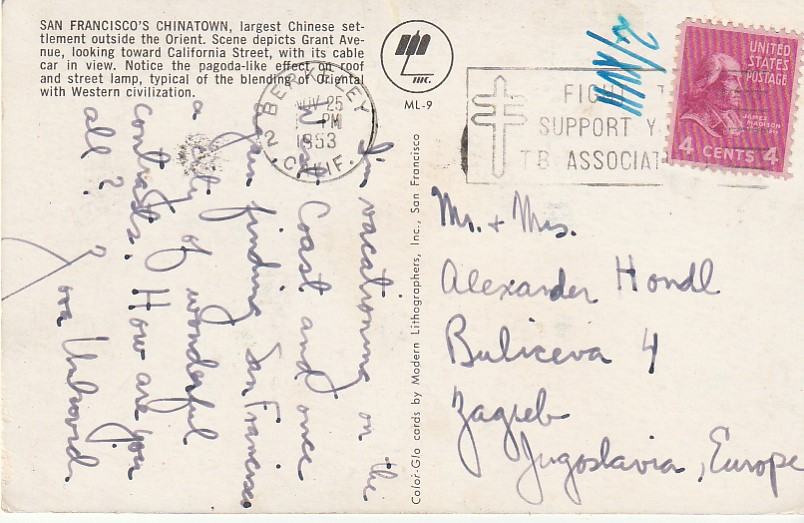 SAN FRANCISCO'S CHINATOWN, largest Chinese set-
tlement outside the Orient. Scene depicts Grant Ave-
nue, looking toward California Street, with its cable
car in view. Notice the pagoda-like effect on roof
and street lamp, typical of the blending of Oriental
with Western civilization.
INC.
ML-9
BERKELEY
NOV 25
PM
1953
2
CALIF.
FIGHT T
SUPPORT Y
T B ASSOCIAT
UNITED
STATES
POSTAGE
JAMES
MADISON
4 CENTS 4
I'm vacationing on the
West Coast and once
again finding San Francisco
a city of wonderful
contrasts. How are you
all?
Color-Glo cards by Modern Lithographers, Inc., San Francisco
Mr. + Mrs.
Alexander Hondl
Buliceva 4
Zagreb
Jugoslavia, Europe